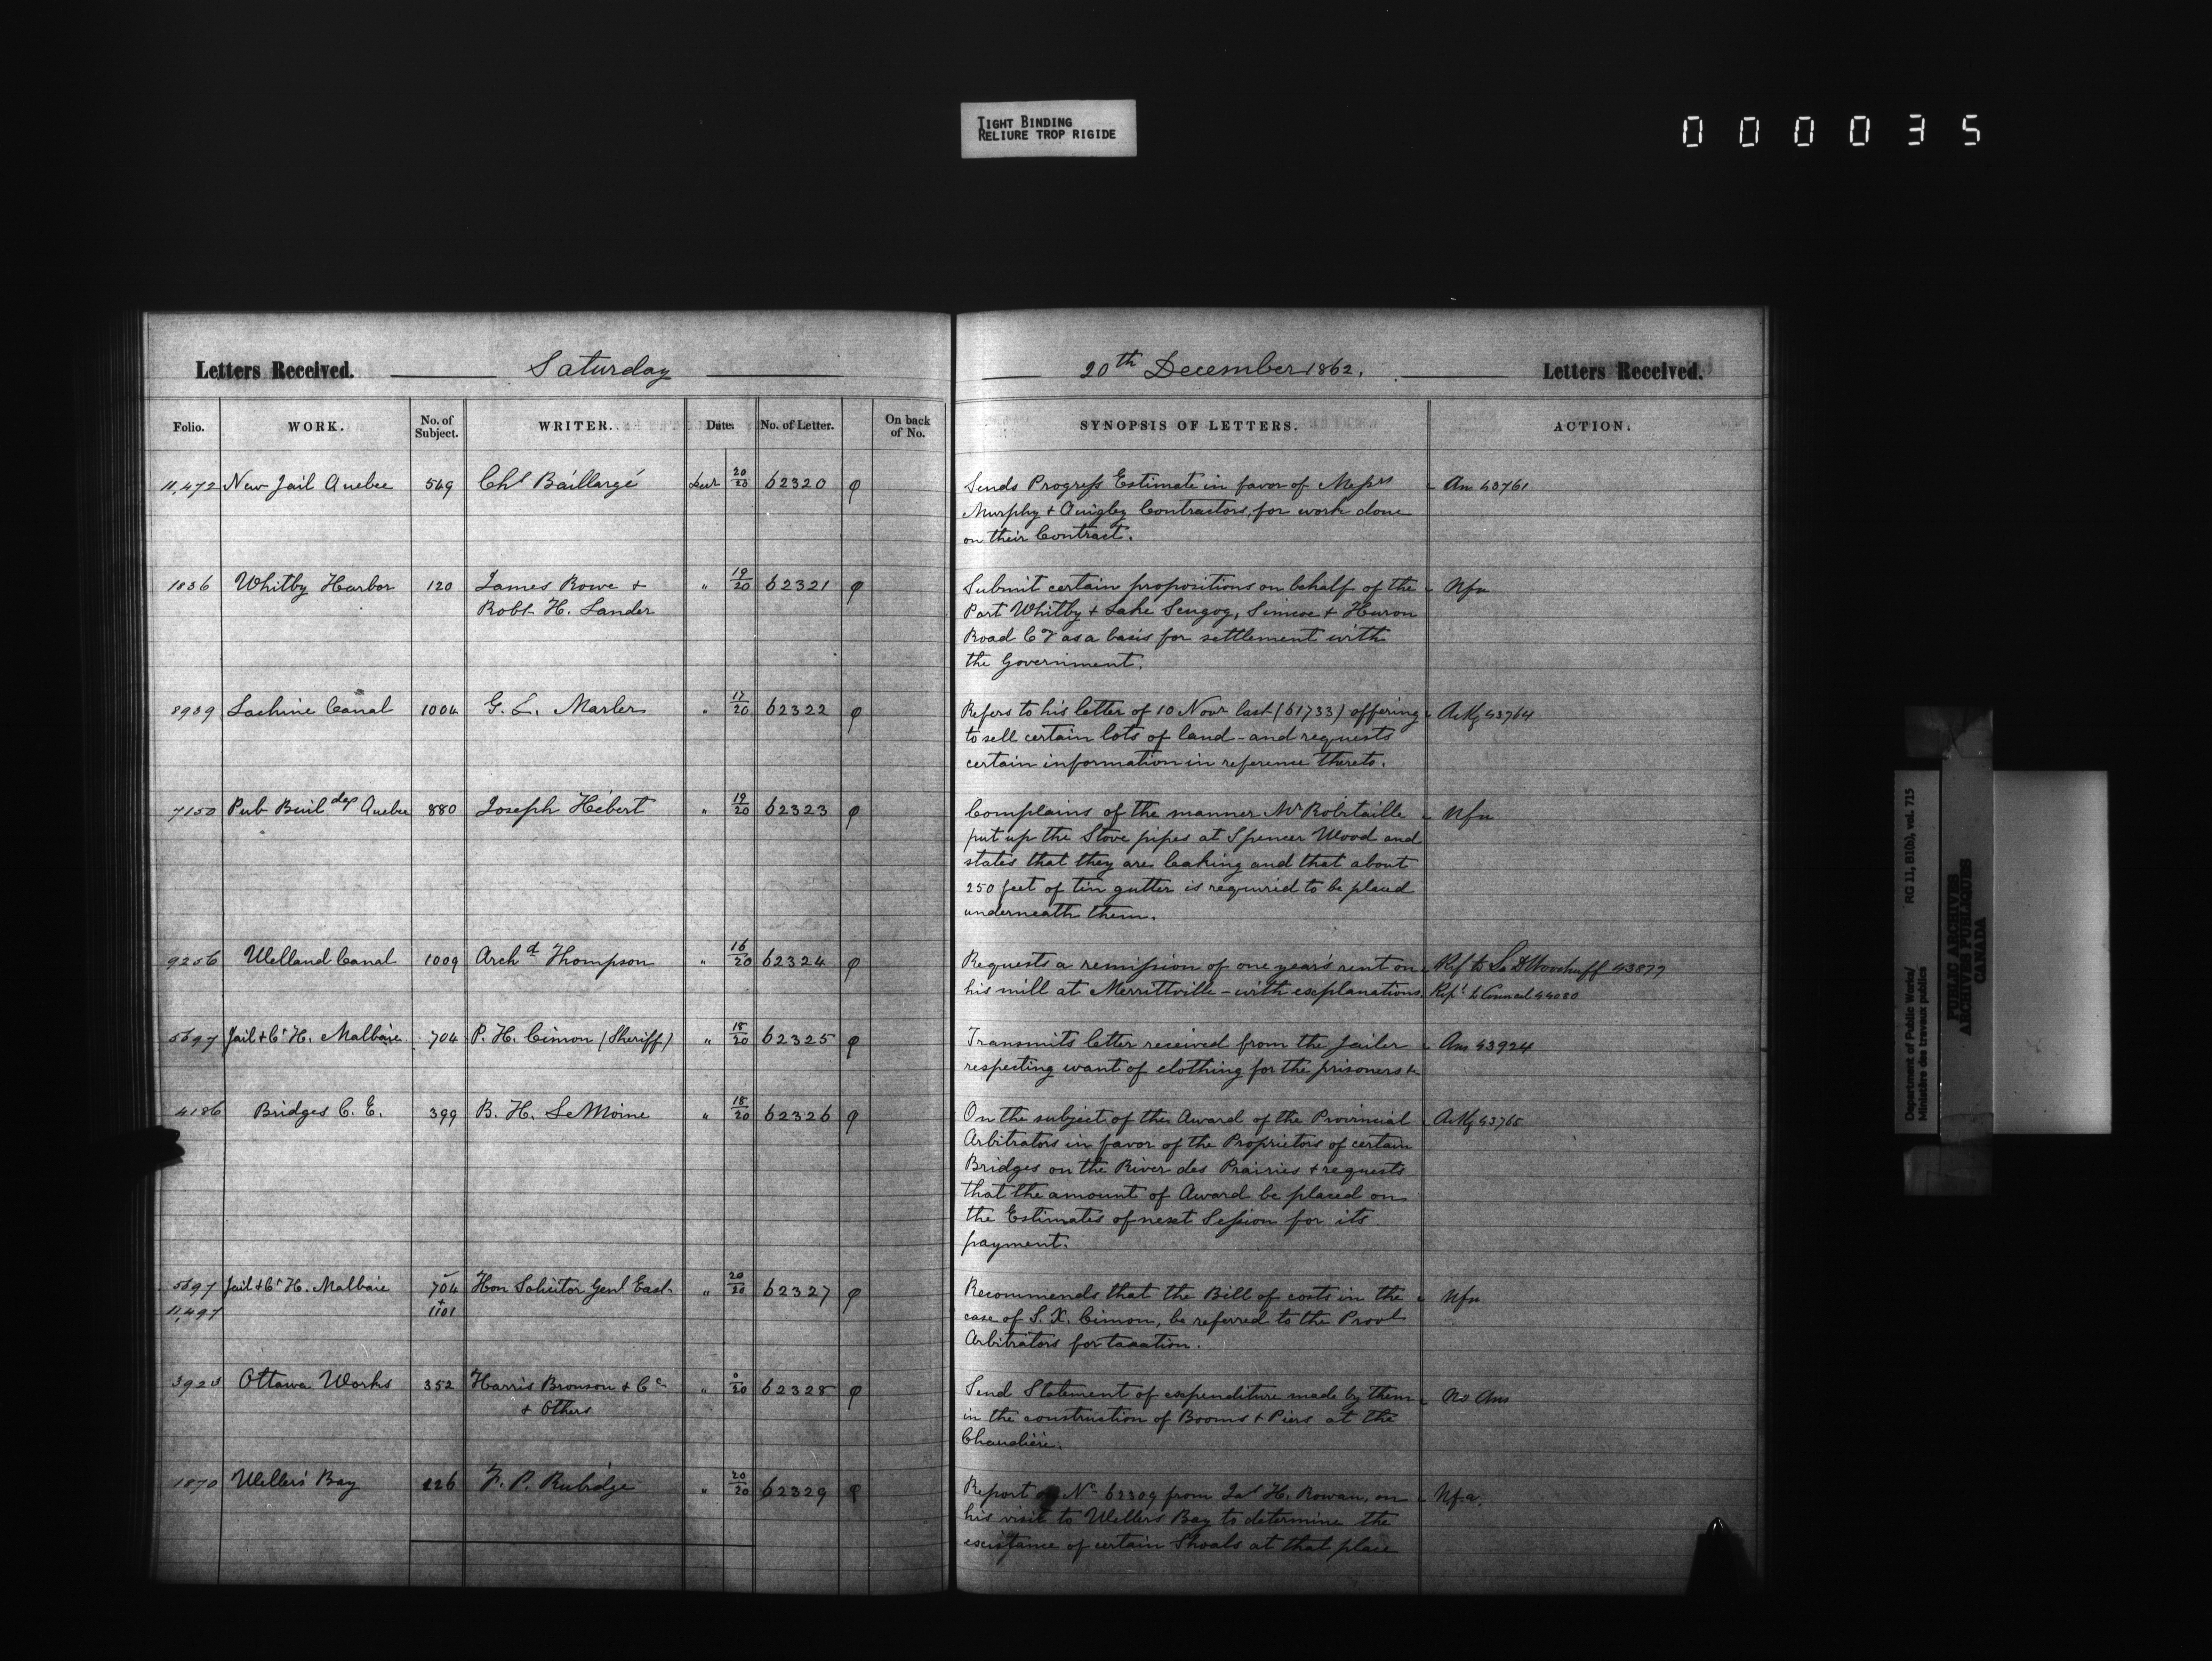 TIGHT BINDING
RELIURE TROP RIGIDE
000035
Letters Received. Saturday 20th December 1862. Letters Received.
Folio. WORK. No. of Subject. WRITER. Dates No. of Letter. On back of No. SYNOPSIS OF LETTERS. ACTION.
11,472 New Jail Quebec 549 Chs Baillargé Decr 20/20 62320 Sends Progress Estimate in favor of Messrs Ans 43761
Murphy + Quigley Contractors, for work done
on their Contract.
1836 Whitby Harbor 120 James Rowe + " 19/20 62321 Submit certain propositions on behalf of the Nfa
Robt H. Lander Port Whitby + Lake Scugog, Simcoe + Huron
Road Cy as a basis for settlement with
the Government.
8939 Lachine Canal 1004 G. L. Marler " 17/20 62322 Refers to his letter of 10 Novr last (61733) offering Ackg 43764
to sell certain lots of land - and requests
certain information in reference thereto.
7150 Pub Buildgs Quebec 880 Joseph Hébert " 19/20 62323 Complains of the manner Mr Robitaille Nfa
put up the Stove pipes at Spencer Wood and
states that they are leaking and that about
250 feet of tin gutter is required to be placed
underneath them.
9256 Welland Canal 1009 Archd Thompson " 16/20 62324 Requests a remission of one year's rent on Ref to S. D Woodruff 43877
his mill at Merrittville - with explanations. Rept to Council 44080
5697 Jail + Ct H. Malbaie 704 P. H. Cimon (Sheriff) " 18/20 62325 Transmits letter received from the Jailer Ans 43924
respecting want of clothing for the prisoners &c
4186 Bridges C. E. 399 B. H. LeMoine " 18/20 62326 On the subject of the Award of the Provincial Ackg 43765
Arbitrators in favor of the Proprietors of certain
Bridges on the River des Prairies + requests
that the amount of Award be placed on
the Estimates of next Session for its
payment.
5697 Jail + Ct H. Malbaie 704 Hon Solicitor Genl East " 20/20 62327 Recommends that the Bill of costs in the Nfa
11,497 + 1101 case of S. X. Cimon, be referred to the Provl
Arbitrators for taxation.
3923 Ottawa Works 352 Harris Bronson + Co " 0/20 62328 Send Statement of expenditure made by them No Ans
+ Others in the construction of Booms + Piers at the
Chaudière.
1870 Weller's Bay 226 F. P. Rubidge " 20/20 62329 Report on No 62309 from Jas H. Rowan, on Nfa.
his visit to Wellers Bay to determine the
existance of certain Shoals at that place
Department of Public Works/ RG 11, B1(b), vol. 715
Ministère des travaux publics
PUBLIC ARCHIVES
ARCHIVES PUBLIQUES
CANADA